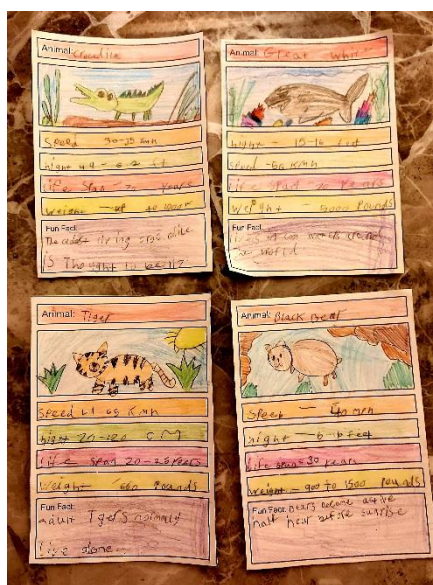 Animal: Crocodile
Speed 30-35 kmh
hight
Life Span - 70 years
Weight - up to
Fun Fact:
The oldest living croc alive
is Thought to be 117
Animal: Great White
hight - 15-16 feet
Speed - 60 KMH
Life Span - 70 years
Weight - 5000 Pounds
Fun Fact:
world
Animal: Tiger
Speed 49-65 KMH
hight 70-120 CM
Life Span 20-26 years
Weight - 660 Pounds
Fun Fact:
adult Tigers normaly
live alone
Animal: Black Bear
Speed - 40 mph
hight - 5-6 feet
Life span - 30 years
Weight - 900 to 1500 Pounds
Fun Fact: Bears become active
half hour before sunrise